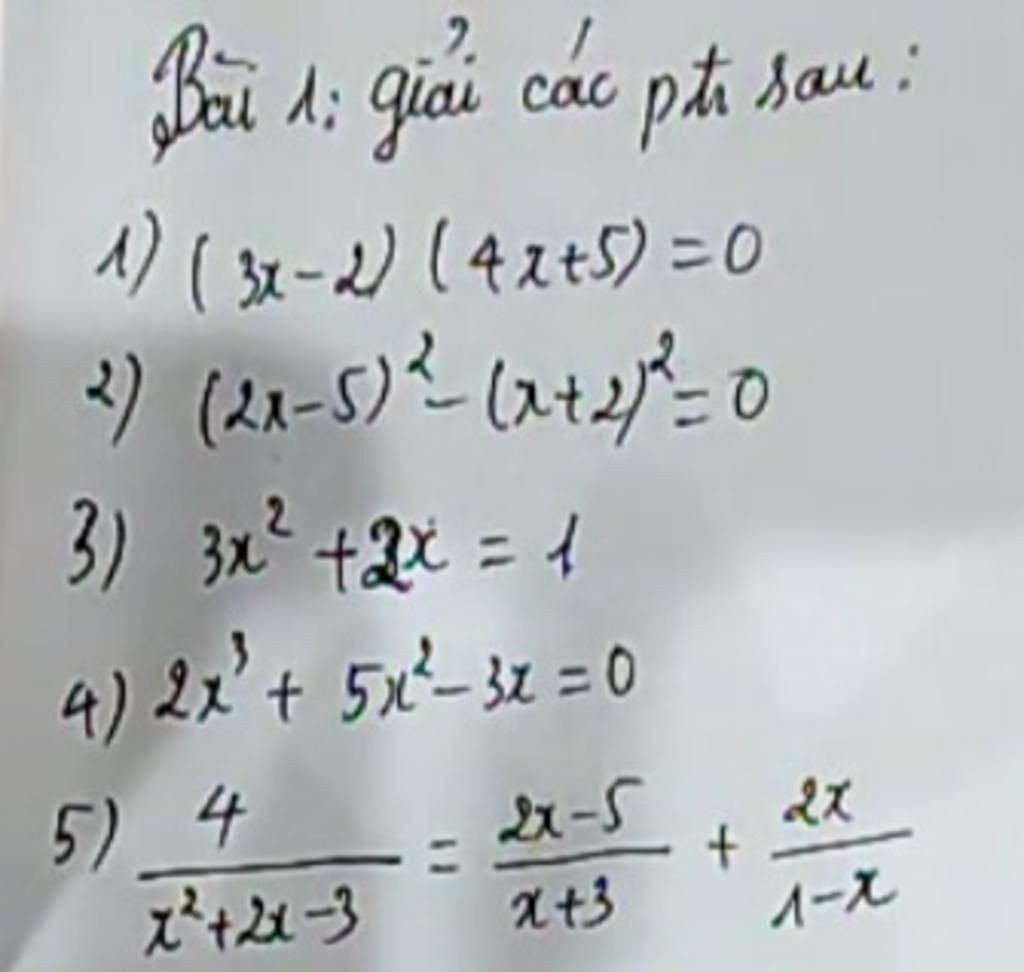 Bài 1: giải các ptr sau:
1) (3x-2) (4x+5) = 0
2) (2x-5)² - (x+2)² = 0
3) 3x² + 2x = 1
4) 2x³ + 5x² - 3x = 0
5) 4/(x²+2x-3) = (2x-5)/(x+3) + 2x/(1-x)